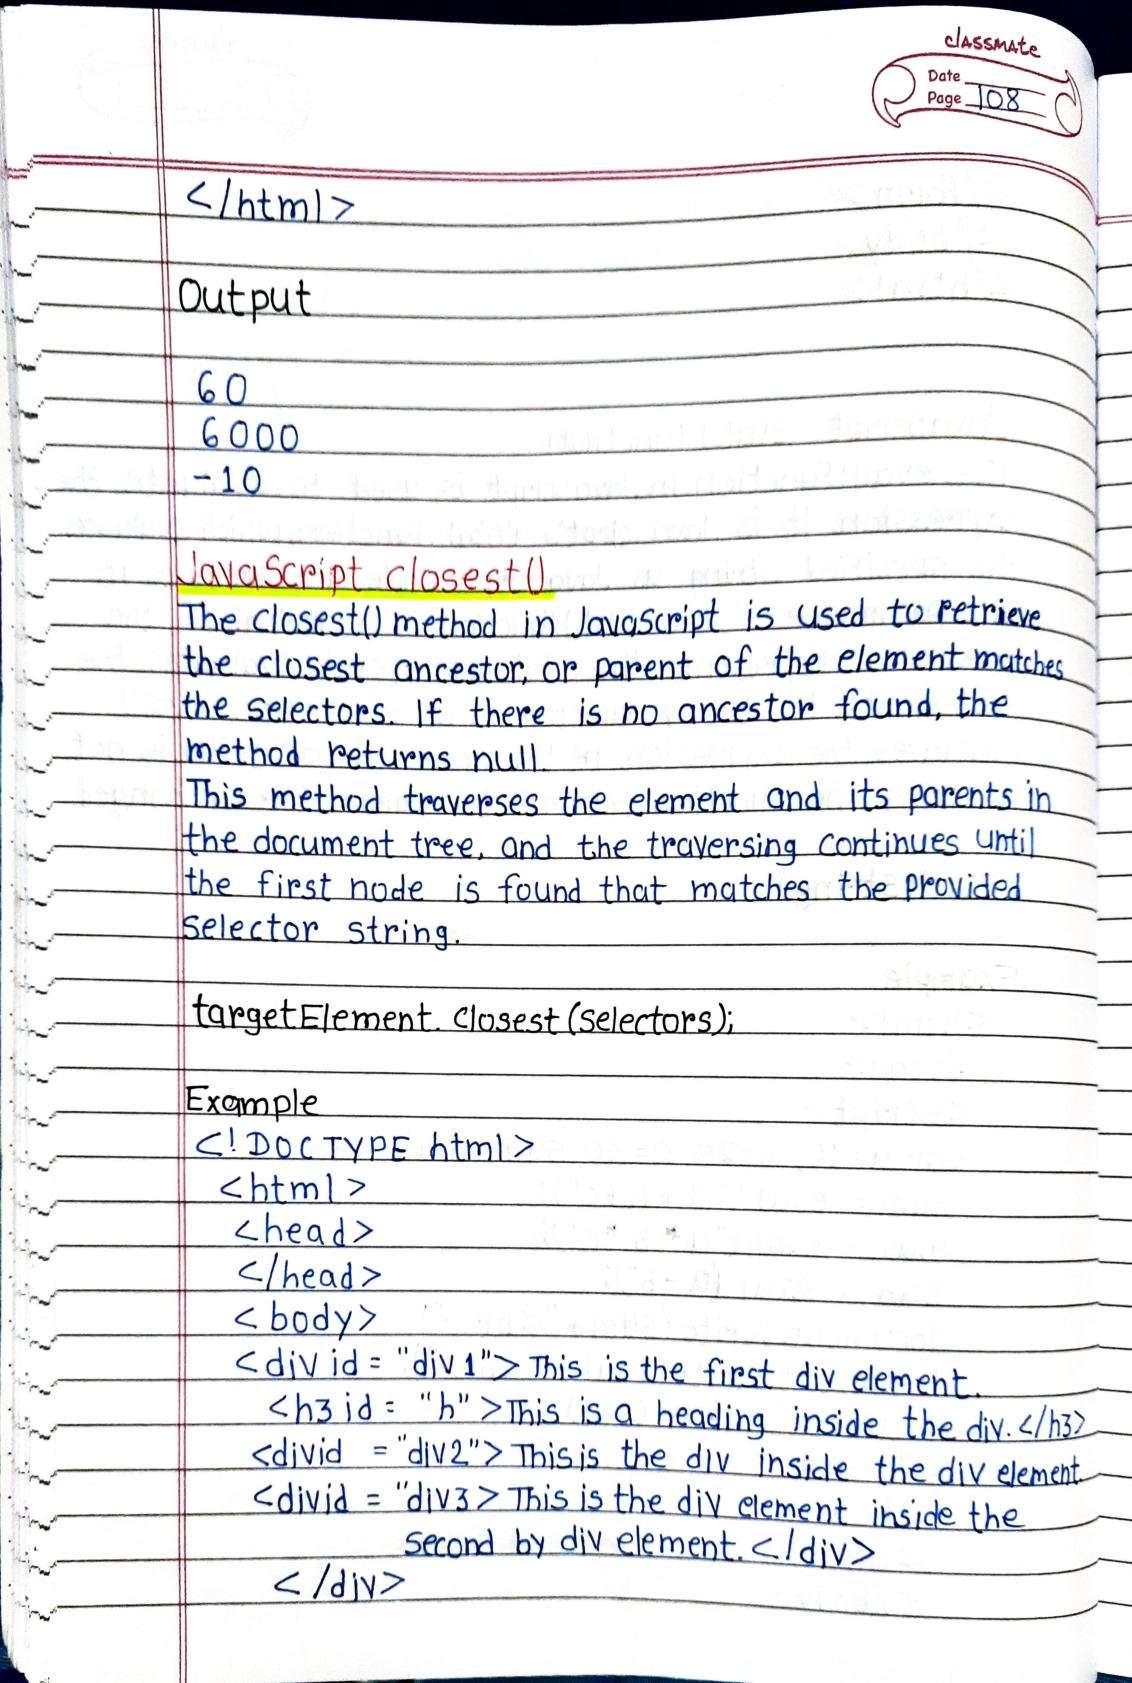 classmate
Date
Page 108
</html>
Output
60
6000
-10
JavaScript closest()
The closest() method in JavaScript is used to retrieve
the closest ancestor, or parent of the element matches
the selectors. If there is no ancestor found, the
method returns null.
This method traverses the element and its parents in
the document tree, and the traversing continues until
the first node is found that matches the provided
selector string.
targetElement.closest(selectors);
Example
<!DOCTYPE html>
<html>
<head>
</head>
<body>
<div id = "div1"> This is the first div element.
<h3 id = "h" >This is a heading inside the div.</h3>
<divid = "div2"> This is the div inside the div element
<divid = "div3> This is the div element inside the
second by div element.</div>
</div>